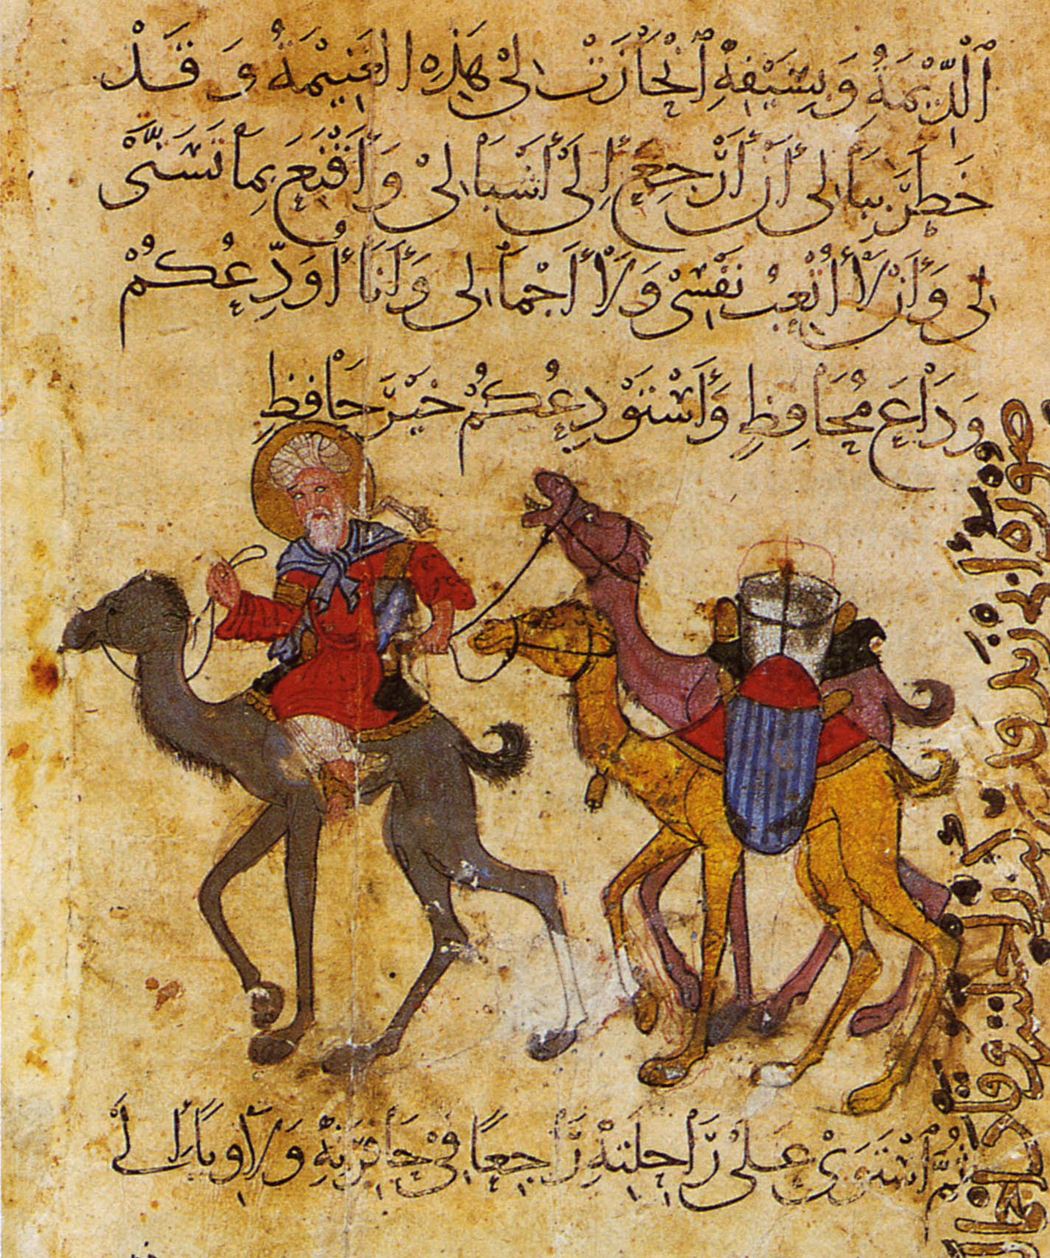 اَلدِّيْمَةُ وَبِسَيْفِهِ اِنْحَازَتْ إلىْ هَذِهِ الغَنِيْمَةُ وَقَدْ
خَطَرَ بِبَالى أَنْ أَرْجِعَ إِلَى أَشْبَالِىْ وَأَقْنَعَ بِمَا تَسَنَّىْ
لِى وَأَنْ لاَ أُتْعِبَ نَفْسِىْ وَلاَ أَجْمَالِى وَأَنَا أُوَدِّعُكُمْ
وَدَاعَ مُحَافِظٍ وَأَسْتَوْدِعُكُمْ خَيْرَ حَافِظٍ
ثُمَّ اسْتَوَىْ عَلىْ رَاحِلَتِهِ رَاجِعًا فِىْ حَافِرَتِهِ وَلاَوِيًا إلَىْ
صورة زيد وقد ركب